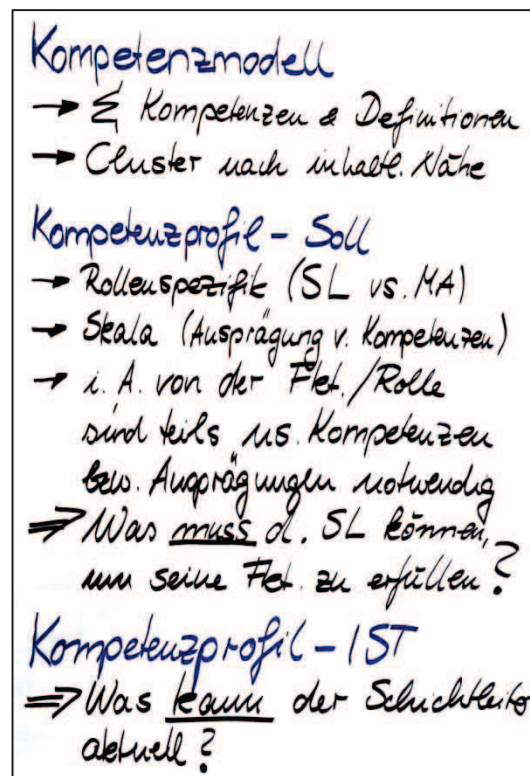 Kompetenzmodell
→ Σ Kompetenzen & Definitionen
→ Cluster nach inhaltl. Nähe
Kompetenzprofil - Soll
→ Rollenspezifik (SL vs. MA)
→ Skala (Ausprägung v. Kompetenzen)
→ i. A. von der Fkt./Rolle
sind teils us. Kompetenzen
bzw. Ausprägungen notwendig
⇒ Was muss d. SL können,
um seine Fkt. zu erfüllen?
Kompetenzprofil - IST
⇒ Was kann der Schichtleiter
aktuell?